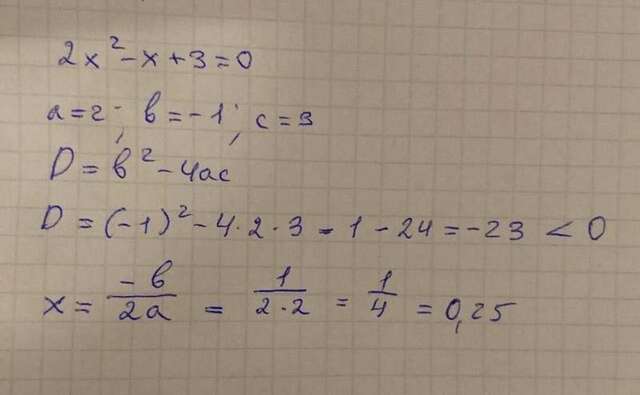 2x² - x + 3 = 0
a = 2; в = -1; c = 3
D = в² - 4ac
D = (-1)² - 4·2·3 = 1 - 24 = -23 < 0
x = -в/2a = 1/2·2 = 1/4 = 0,25